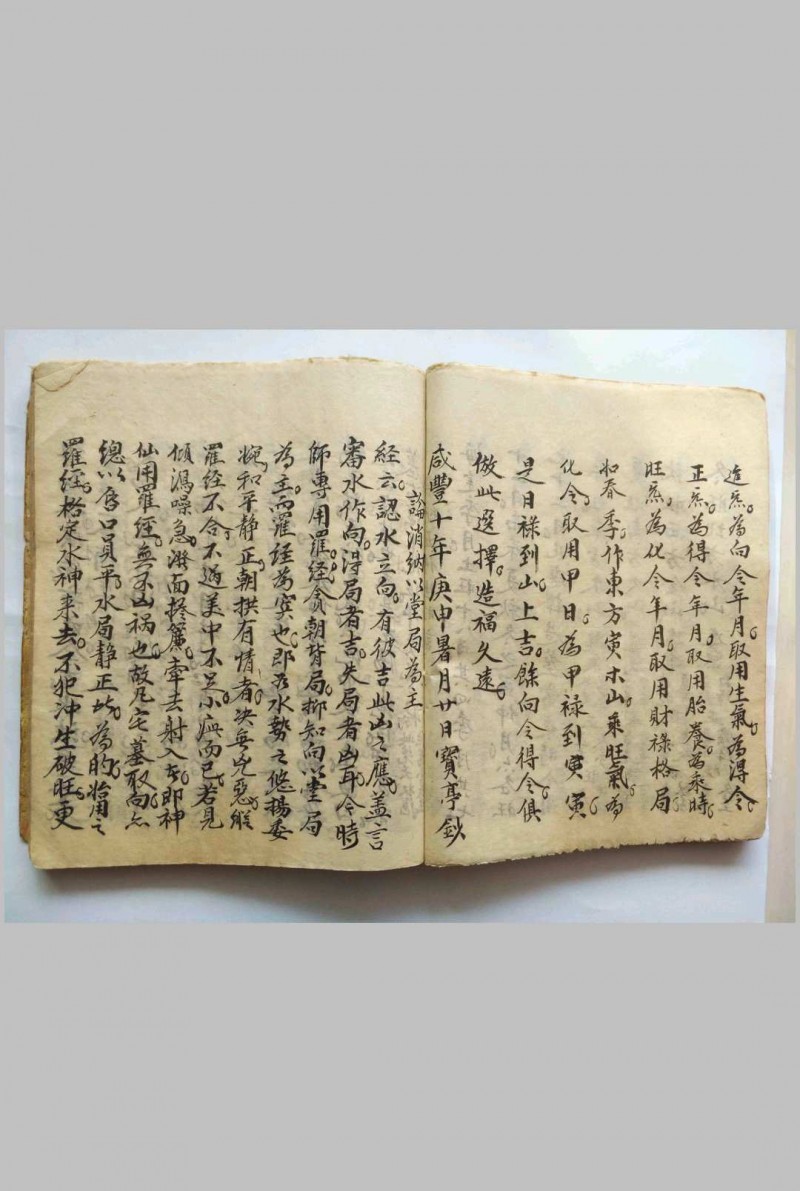 進炁。為向令年月。取用生氣。為得令。
正炁。為得令年月。取用胎養。為乘時。
旺炁。為化令年月。取用財祿格局。
如春季。作東方寅木山。乘旺氣。為
化令。取用甲日。為甲祿到寅。寅
是日祿到山。上吉。餘向令得令。俱
倣此選擇。造福久遠。
咸豐十年庚申暑月廿日寶亭鈔
論消納以堂局為主
經云。認水立向。有彼吉此凶之應。蓋言
審水作向。得局者吉。失局者凶耳。今時
師專用羅經。貪朝背局。抑知向以堂局
為主。而羅經為賓也。即如水勢之悠揚委
婉。和平靜正。朝拱有情者。決無凶惡。縱
羅經不合。不過美中不足。小疵而已。若見
傾瀉噪急。潑面捲簾。牽去射入者。即神
仙用羅經。無不凶禍也。故凡宅墓取向。
總以唇口員平。水局靜正。此為的。
羅經。格定水神来去。不犯冲生破旺。更